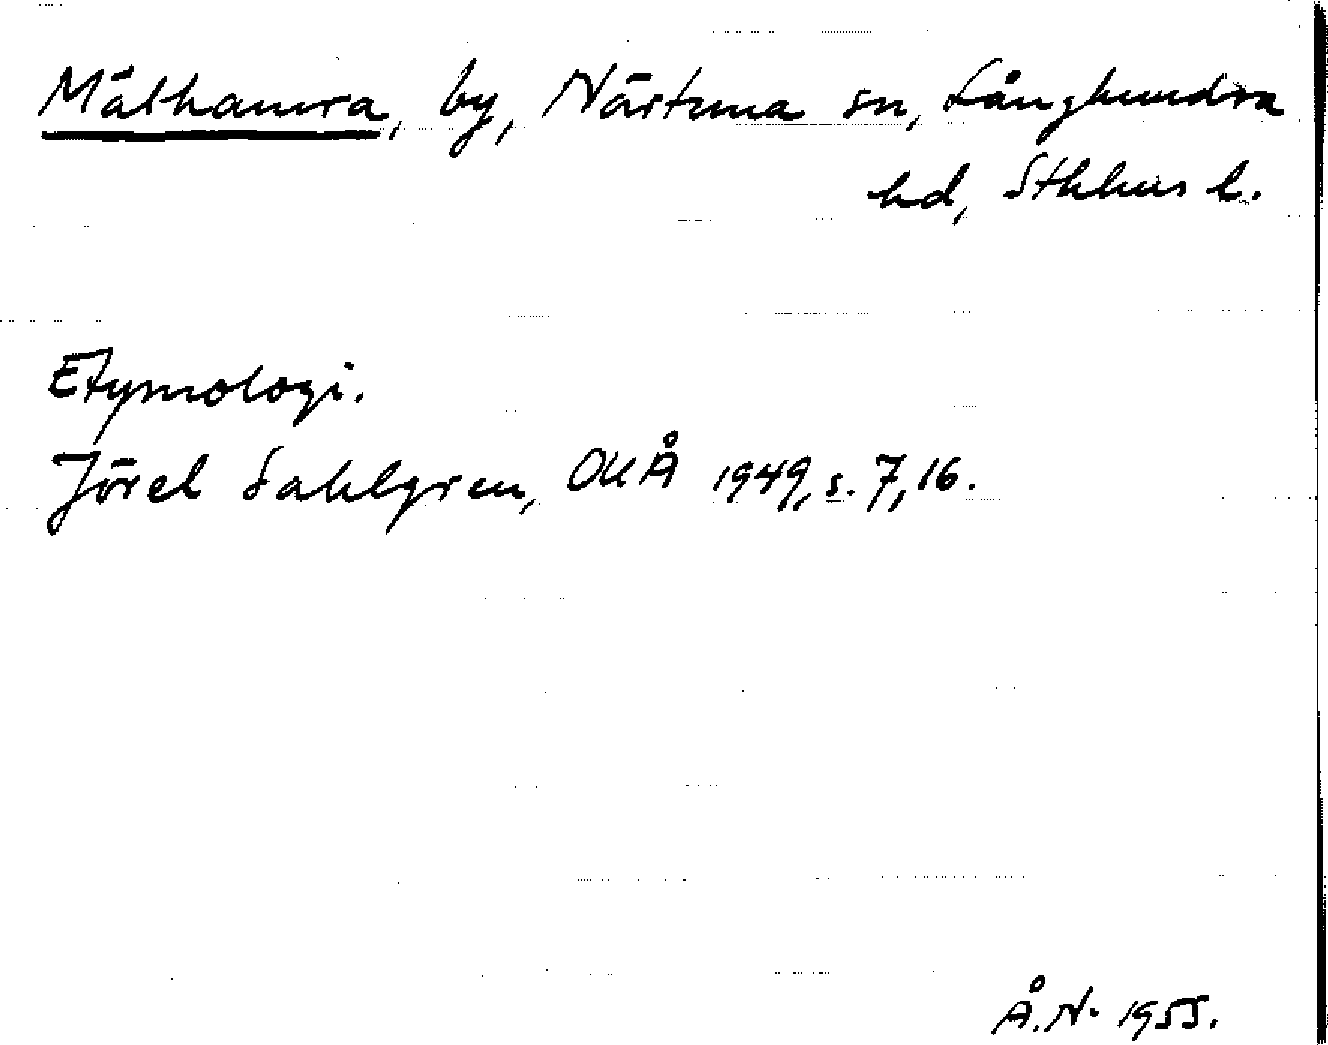 Mälhamra, by, Närtuna sn, Långhundra
hd, Sthlms l.
Etymologi.
Jöran Sahlgren, OUÅ 1949, s. 7, 16.
Å.N. 1955.